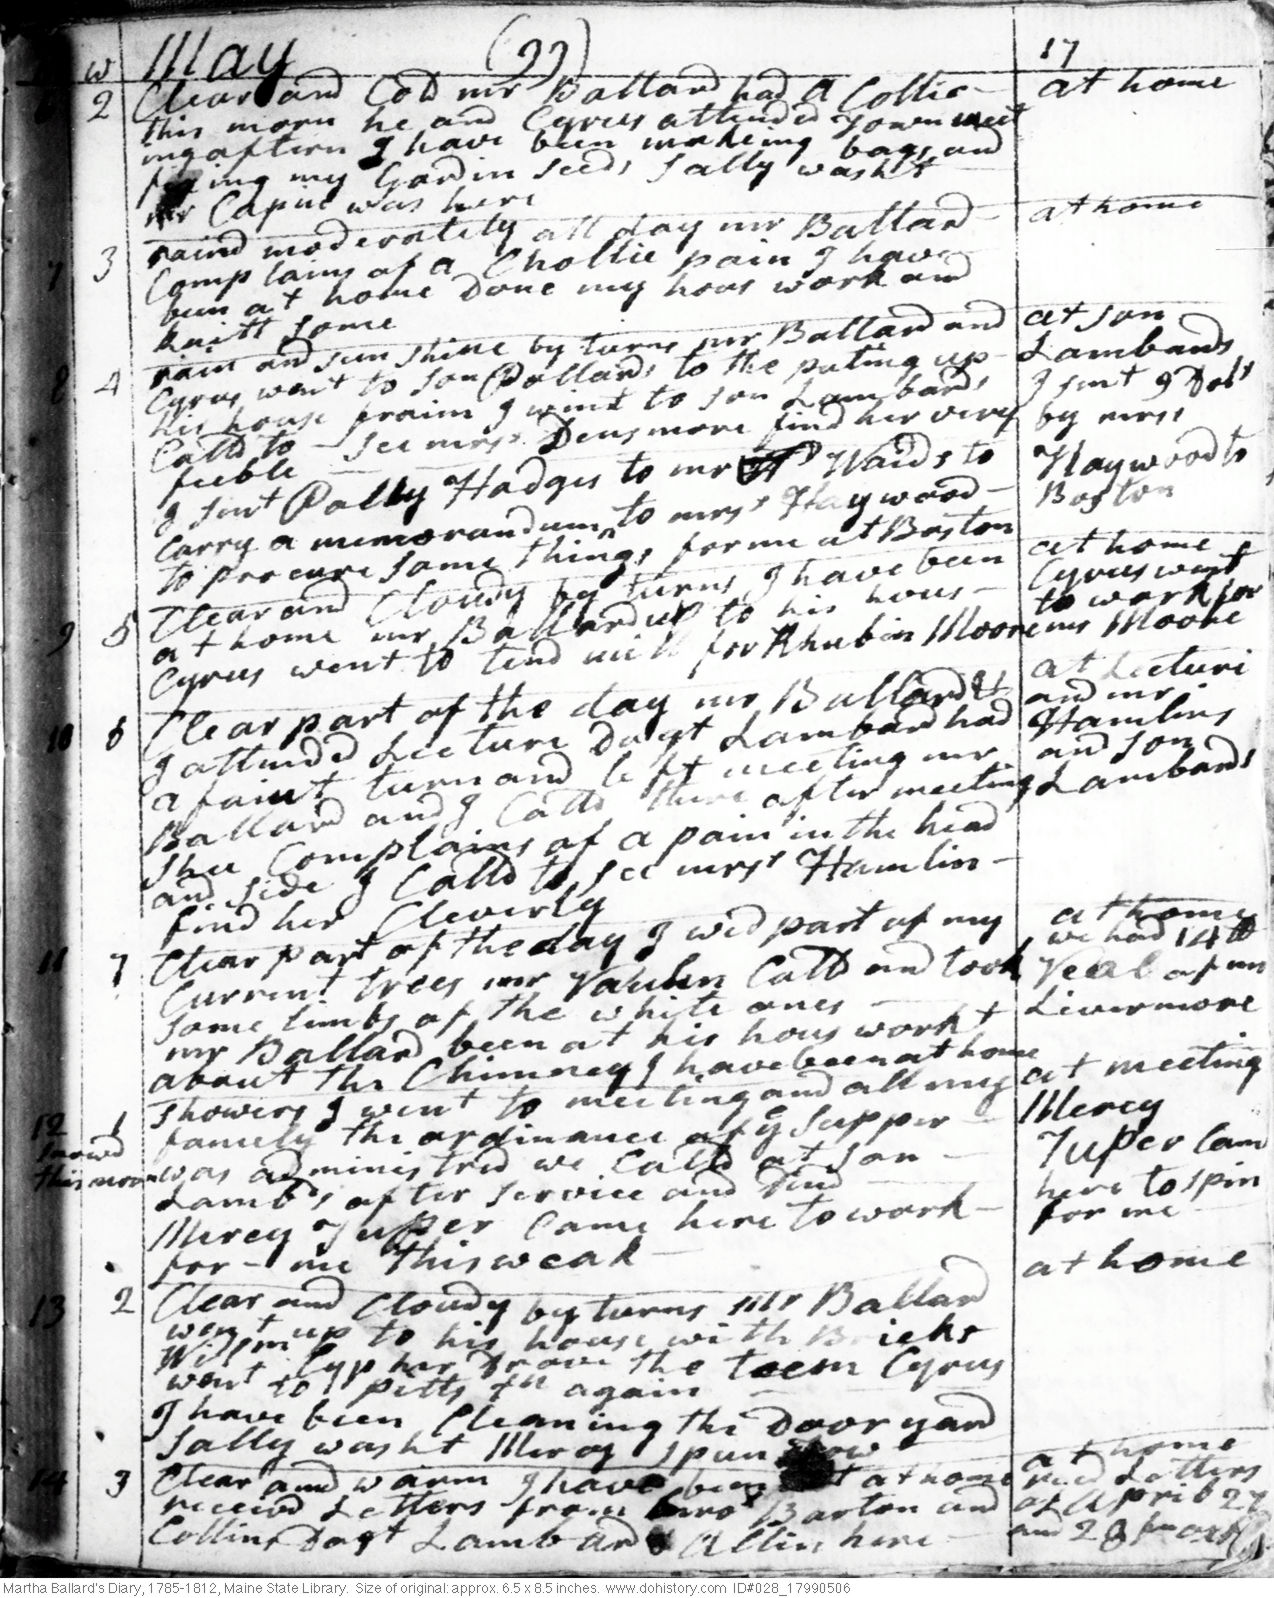 w May (99) 17
6 2 Clear and Cold mr Ballard had a Collic - at home
this morn he and Cyrus attended Town meet
ing aftern I have been makeing bags and
fixing my Gardin seeds Sally washt
mr Capin was here
7 3 raind moderately all day mr Ballard - at home
Complains of a Chollic pain I have
been at home Done my hous work and
knitt some
8 4 rain and sun shine by turns mr Ballard and at son
Cyrus went to son Pollards to the puting up Lambards
his house fraim I went to son Lambards I sent 9 Dolrs
Calld to see mrss Densmore find her very by mrss
feeble
I sent Polly Hodges to mr Waids to Haywood to
Carry a memorandum to mrss Haywood - Boston
to procure some things for me at Boston
9 5 Clear and Cloudy by turns I have been at home
at home mr Ballard up to his hous - Cyrus went
Cyrus went to tend mill for Rhubin Moore to work for mr Moore
10 6 Clear part of the day mr Ballard & at Lecture
I attended Lecture Dagt Lambard had and mr
a faint turn and left meeting mr Hamlins
Ballard and I Calld there after meeting and son Lambards
Shee Complains of a pain in the head
and side I Calld to see mrss Hamlin -
find her Cleverly
11 7 Clear part of the day I wed part of my at home
Current trees mr Vauhn Calld and took we had 14 lb
some limbs of the white ones Veal of mr
mr Ballard been at his hous workt Livermore
about the Chimney I have been at home
12 1 showers I went to meeting and all my at meeting
snowd famely the ordinance of ye supper - Mercy
this morn was administred we Calld at son - Tuper Cam
Lambds after service and Dind here to spin
Mercy Tupper Came here to work - for me
for - me this weak -
13 2 Clear and Cloudy by turns mr Ballard at home
went up to his house with Bricks
Wilm Cypher Drove the teem Cyrus
went to pitts again
I have been Cleaning the Door yard
Sally washt Mercy spun tow
14 3 Clear and warm I have been at home at home
received Letters from bror Barton and recd Letters
Collins Dagt Lambard & Allin here of April 27 and 28
Martha Ballard's Diary, 1785-1812, Maine State Library. Size of original: approx. 6.5 x 8.5 inches. www.dohistory.com ID#028_17990506